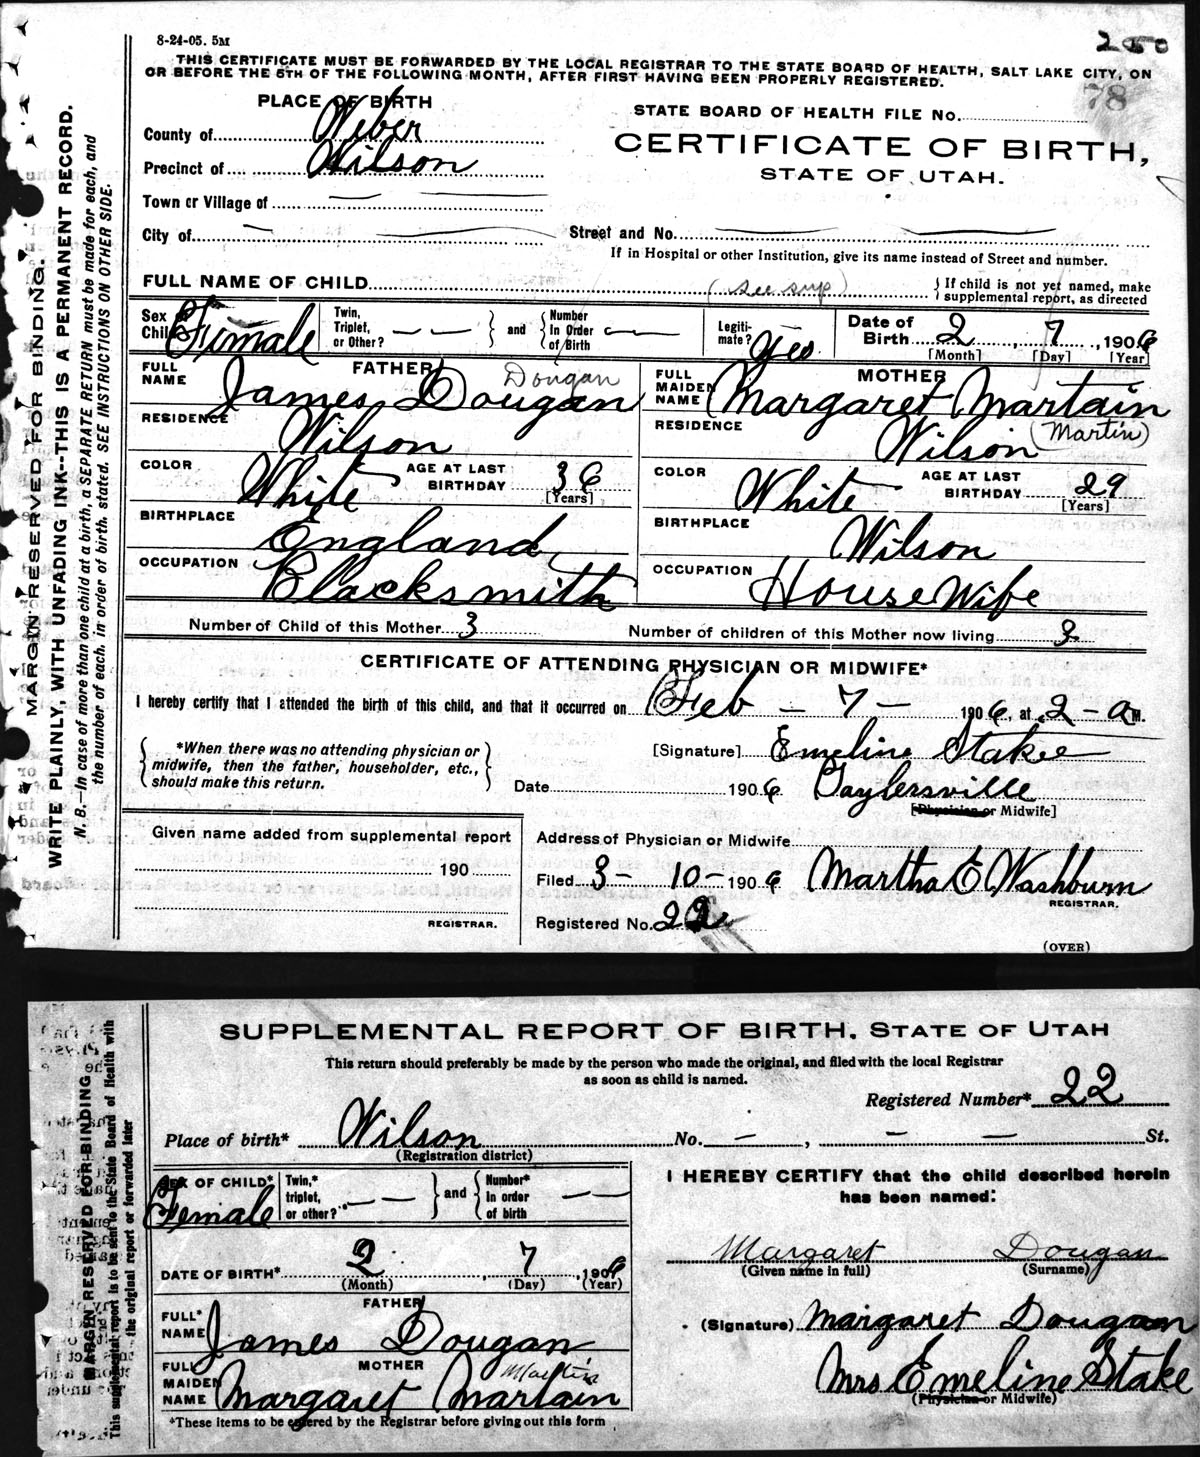 8-24-05. 5M
250
THIS CERTIFICATE MUST BE FORWARDED BY THE LOCAL REGISTRAR TO THE STATE BOARD OF HEALTH, SALT LAKE CITY, ON
OR BEFORE THE 5TH OF THE FOLLOWING MONTH, AFTER FIRST HAVING BEEN PROPERLY REGISTERED.
78
PLACE OF BIRTH
STATE BOARD OF HEALTH FILE No.
County of Weber
CERTIFICATE OF BIRTH,
Precinct of Wilson
STATE OF UTAH.
Town or Village of — —
City of — — Street and No. — —
If in Hospital or other Institution, give its name instead of Street and number.
FULL NAME OF CHILD (see sup) } If child is not yet named, make
supplemental report, as directed
Sex of Child Female Twin, Triplet, or Other? — — } and { Number In Order of Birth — Legiti-mate? Yes Date of Birth 2, 7, 1906
[Month] [Day] [Year]
FATHER
MOTHER
FULL NAME James Dougan Dougan
FULL MAIDEN NAME Margaret Martain
RESIDENCE Wilson
RESIDENCE Wilson (Martin)
COLOR White AGE AT LAST BIRTHDAY 36 [Years]
COLOR White AGE AT LAST BIRTHDAY 29 [Years]
BIRTHPLACE England
BIRTHPLACE Wilson
OCCUPATION Blacksmith
OCCUPATION House Wife
Number of Child of this Mother 3 Number of children of this Mother now living 3
CERTIFICATE OF ATTENDING PHYSICIAN OR MIDWIFE*
I hereby certify that I attended the birth of this child, and that it occurred on Feb — 7 — 1906, at 2 - a M.
{ *When there was no attending physician or
midwife, then the father, householder, etc.,
should make this return. }
[Signature] Emeline Stake
Date 1906 Taylersville
[Physician or Midwife]
Given name added from supplemental report
190
REGISTRAR.
Address of Physician or Midwife
Filed 3- 10- 1906 Martha E Washburn
REGISTRAR.
Registered No. 22
(OVER)
MARGIN RESERVED FOR BINDING.
WRITE PLAINLY, WITH UNFADING INK--THIS IS A PERMANENT RECORD.
N. B.—In case of more than one child at a birth, a SEPARATE RETURN must be made for each, and
the number of each, in order of birth, stated. SEE INSTRUCTIONS ON OTHER SIDE.
SUPPLEMENTAL REPORT OF BIRTH. STATE OF UTAH
This return should preferably be made by the person who made the original, and filed with the local Registrar
as soon as child is named.
Registered Number* 22
Place of birth* Wilson No. — , — — St.
(Registration district)
SEX OF CHILD* Female Twin,* triplet, or other? — — } and { Number* In order of birth — —
DATE OF BIRTH* 2, 7, 1906
(Month) (Day) (Year)
FATHER
FULL* NAME James Dougan
MOTHER
FULL MAIDEN NAME Margaret Martain Martin
*These items to be entered by the Registrar before giving out this form
I HEREBY CERTIFY that the child described herein
has been named:
Margaret Dougan
(Given name in full) (Surname)
(Signature) Margaret Dougan
Mrs Emeline Stake
(Physician or Midwife)
MARGIN RESERVED FOR BINDING
This supplemental report is to be sent to the State Board of Health with
the original report or forwarded later